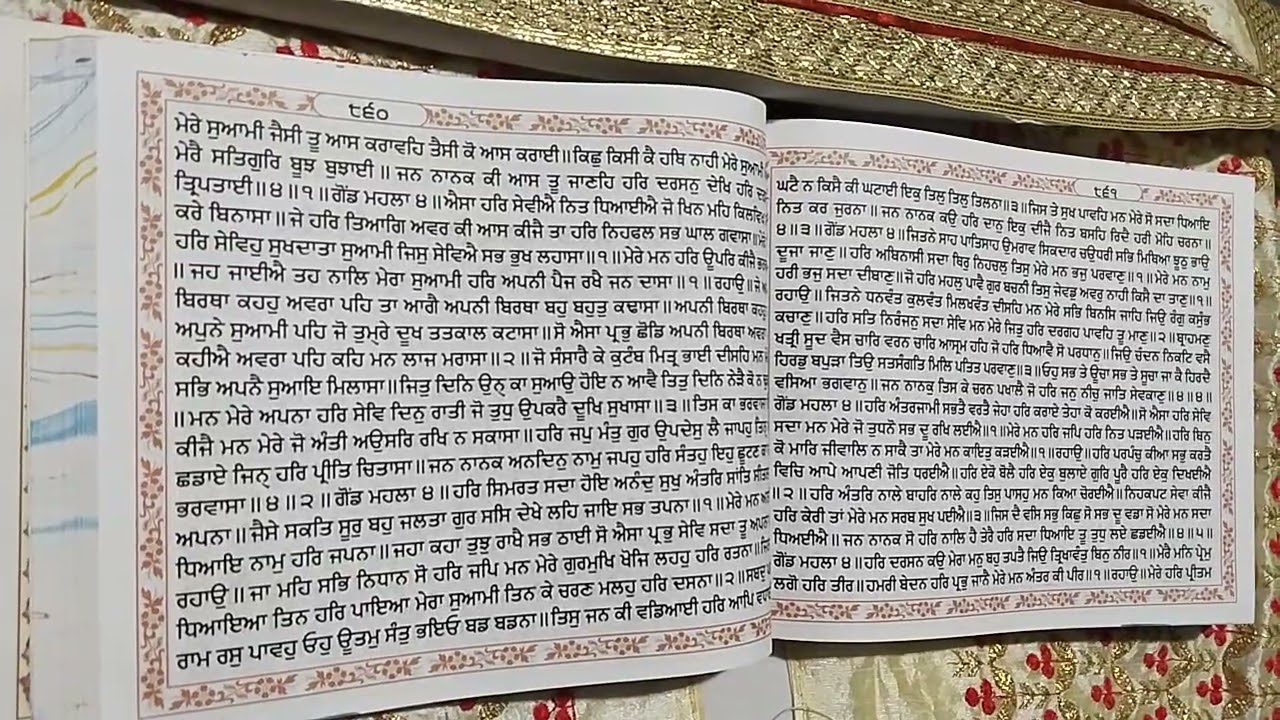 ੮੬੦
ਮੇਰੇ ਸੁਆਮੀ ਜੈਸੀ ਤੂ ਆਸ ਕਰਾਵਹਿ ਤੈਸੀ ਕੋ ਆਸ ਕਰਾਈ॥ਕਿਛੁ ਕਿਸੀ ਕੈ ਹਥਿ ਨਾਹੀ ਮੇਰੇ ਸੁਆਮੀ
ਮੇਰੈ ਸਤਿਗੁਰਿ ਬੂਝ ਬੁਝਾਈ॥ ਜਨ ਨਾਨਕ ਕੀ ਆਸ ਤੂ ਜਾਣਹਿ ਹਰਿ ਦਰਸਨੁ ਦੇਖਿ ਹਰਿ
ਤ੍ਰਿਪਤਾਈ॥੪॥੧॥ਗੋਂਡ ਮਹਲਾ ੪॥ਐਸਾ ਹਰਿ ਸੇਵੀਐ ਨਿਤ ਧਿਆਈਐ ਜੋ ਖਿਨ ਮਹਿ
ਕਰੇ ਬਿਨਾਸਾ॥ਜੇ ਹਰਿ ਤਿਆਗਿ ਅਵਰ ਕੀ ਆਸ ਕੀਜੈ ਤਾ ਹਰਿ ਨਿਹਫਲ ਸਭ ਘਾਲ ਗਵਾਸਾ॥
ਹਰਿ ਸੇਵਿਹੁ ਸੁਖਦਾਤਾ ਸੁਆਮੀ ਜਿਸੁ ਸੇਵਿਐ ਸਭ ਭੁਖ ਲਹਾਸਾ॥੧॥ਮੇਰੇ ਮਨ ਹਰਿ ਊਪਰਿ ਕੀਜੈ
॥ਜਹ ਜਾਈਐ ਤਹ ਨਾਲਿ ਮੇਰਾ ਸੁਆਮੀ ਹਰਿ ਅਪਨੀ ਪੈਜ ਰਖੈ ਜਨ ਦਾਸਾ॥੧॥ਰਹਾਉ॥ਜੇ
ਬਿਰਥਾ ਕਹਹੁ ਅਵਰਾ ਪਹਿ ਤਾ ਆਗੈ ਅਪਨੀ ਬਿਰਥਾ ਬਹੁ ਬਹੁਤੁ ਕਢਾਸਾ॥ਅਪਨੀ ਬਿਰਥਾ
ਅਪੁਨੇ ਸੁਆਮੀ ਪਹਿ ਜੋ ਤੁਮ੍ਰੇ ਦੂਖ ਤਤਕਾਲ ਕਟਾਸਾ॥ਸੋ ਐਸਾ ਪ੍ਰਭੁ ਛੋਡਿ ਅਪਨੀ ਬਿਰਥਾ
ਕਹੀਐ ਅਵਰਾ ਪਹਿ ਕਹਿ ਮਨ ਲਾਜ ਮਰਾਸਾ॥੨॥ਜੋ ਸੰਸਾਰੈ ਕੇ ਕੁਟੰਬ ਮਿਤ੍ਰ ਭਾਈ ਦੀਸਹਿ ਮਨ
ਸਭਿ ਅਪਨੈ ਸੁਆਇ ਮਿਲਾਸਾ॥ਜਿਤੁ ਦਿਨਿ ਉਨ੍ ਕਾ ਸੁਆਉ ਹੋਇ ਨ ਆਵੈ ਤਿਤੁ ਦਿਨਿ ਨੇੜੈ ਕੋ ਨ
॥ਮਨ ਮੇਰੇ ਅਪਨਾ ਹਰਿ ਸੇਵਿ ਦਿਨੁ ਰਾਤੀ ਜੋ ਤੁਧੁ ਉਪਕਰੈ ਦੂਖਿ ਸੁਖਾਸਾ॥੩॥ਤਿਸ ਕਾ ਭਰਵਾਸਾ
ਕੀਜੈ ਮਨ ਮੇਰੇ ਜੋ ਅੰਤੀ ਅਉਸਰਿ ਰਖਿ ਨ ਸਕਾਸਾ॥ਹਰਿ ਜਪੁ ਮੰਤੁ ਗੁਰ ਉਪਦੇਸੁ ਲੈ ਜਾਪਹੁ
ਛਡਾਏ ਜਿਨ੍ ਹਰਿ ਪ੍ਰੀਤਿ ਚਿਤਾਸਾ॥ਜਨ ਨਾਨਕ ਅਨਦਿਨੁ ਨਾਮੁ ਜਪਹੁ ਹਰਿ ਸੰਤਹੁ ਇਹੁ ਛੂਟਣ
ਭਰਵਾਸਾ॥੪॥੨॥ ਗੋਂਡ ਮਹਲਾ ੪॥ਹਰਿ ਸਿਮਰਤ ਸਦਾ ਹੋਇ ਅਨੰਦੁ ਸੁਖੁ ਅੰਤਰਿ ਸਾਂਤਿ ਸੀਤਲ
ਅਪਨਾ॥ਜੈਸੇ ਸਕਤਿ ਸੂਰੁ ਬਹੁ ਜਲਤਾ ਗੁਰ ਸਸਿ ਦੇਖੇ ਲਹਿ ਜਾਇ ਸਭ ਤਪਨਾ॥੧॥ਮੇਰੇ ਮਨ
ਧਿਆਇ ਨਾਮੁ ਹਰਿ ਜਪਨਾ॥ਜਹਾ ਕਹਾ ਤੁਝੁ ਰਾਖੈ ਸਭ ਠਾਈ ਸੋ ਐਸਾ ਪ੍ਰਭੁ ਸੇਵਿ ਸਦਾ ਤੂ ਅਪਨਾ
ਰਹਾਉ॥ ਜਾ ਮਹਿ ਸਭਿ ਨਿਧਾਨ ਸੋ ਹਰਿ ਜਪਿ ਮਨ ਮੇਰੇ ਗੁਰਮੁਖਿ ਖੋਜਿ ਲਹਹੁ ਹਰਿ ਰਤਨਾ॥
ਧਿਆਇਆ ਤਿਨ ਹਰਿ ਪਾਇਆ ਮੇਰਾ ਸੁਆਮੀ ਤਿਨ ਕੇ ਚਰਣ ਮਲਹੁ ਹਰਿ ਦਸਨਾ॥੨॥ਸਬਦੁ
ਰਾਮ ਰਸੁ ਪਾਵਹੁ ਓਹੁ ਊਤਮੁ ਸੰਤੁ ਭਇਓ ਬਡ ਬਡਨਾ॥ਤਿਸੁ ਜਨ ਕੀ ਵਡਿਆਈ ਹਰਿ ਆਪਿ
੮੬੧
ਘਟੈ ਨ ਕਿਸੈ ਕੀ ਘਟਾਈ ਇਕੁ ਤਿਲੁ ਤਿਲੁ ਤਿਲਨਾ॥੩॥ਜਿਸ ਤੇ ਸੁਖ ਪਾਵਹਿ ਮਨ ਮੇਰੇ ਸੋ ਸਦਾ ਧਿਆਇ
ਨਿਤ ਕਰ ਜੁਰਨਾ॥ਜਨ ਨਾਨਕ ਕਉ ਹਰਿ ਦਾਨੁ ਇਕੁ ਦੀਜੈ ਨਿਤ ਬਸਹਿ ਰਿਦੈ ਹਰੀ ਮੋਹਿ ਚਰਨਾ॥
੪॥੩॥ਗੋਂਡ ਮਹਲਾ ੪॥ਜਿਤਨੇ ਸਾਹ ਪਾਤਿਸਾਹ ਉਮਰਾਵ ਸਿਕਦਾਰ ਚਉਧਰੀ ਸਭਿ ਮਿਥਿਆ ਝੂਠੁ ਭਾਉ
ਦੂਜਾ ਜਾਣੁ॥ ਹਰਿ ਅਬਿਨਾਸੀ ਸਦਾ ਥਿਰੁ ਨਿਹਚਲੁ ਤਿਸੁ ਮੇਰੇ ਮਨ ਭਜੁ ਪਰਵਾਣੁ॥੧॥ਮੇਰੇ ਮਨ ਨਾਮੁ
ਹਰੀ ਭਜੁ ਸਦਾ ਦੀਬਾਣੁ॥ਜੋ ਹਰਿ ਮਹਲੁ ਪਾਵੈ ਗੁਰ ਬਚਨੀ ਤਿਸੁ ਜੇਵਡੁ ਅਵਰੁ ਨਾਹੀ ਕਿਸੈ ਦਾ ਤਾਣੁ॥੧॥
ਰਹਾਉ॥ਜਿਤਨੇ ਧਨਵੰਤ ਕੁਲਵੰਤ ਮਿਲਖਵੰਤ ਦੀਸਹਿ ਮਨ ਮੇਰੇ ਸਭਿ ਬਿਨਸਿ ਜਾਹਿ ਜਿਉ ਰੰਗੁ ਕਸੁੰਭ
ਕਚਾਣੁ॥ਹਰਿ ਸਤਿ ਨਿਰੰਜਨੁ ਸਦਾ ਸੇਵਿ ਮਨ ਮੇਰੇ ਜਿਤੁ ਹਰਿ ਦਰਗਹ ਪਾਵਹਿ ਤੂ ਮਾਣੁ॥੨॥ਬ੍ਰਾਹਮਣੁ
ਖਤ੍ਰੀ ਸੂਦ ਵੈਸ ਚਾਰਿ ਵਰਨ ਚਾਰਿ ਆਸ੍ਰਮ ਹਹਿ ਜੋ ਹਰਿ ਧਿਆਵੈ ਸੋ ਪਰਧਾਨੁ॥ਜਿਉ ਚੰਦਨ ਨਿਕਟਿ ਵਸੈ
ਹਿਰਡੁ ਬਪੁੜਾ ਤਿਉ ਸਤਸੰਗਤਿ ਮਿਲਿ ਪਤਿਤ ਪਰਵਾਣੁ॥੩॥ਓਹੁ ਸਭ ਤੇ ਊਚਾ ਸਭ ਤੇ ਸੂਚਾ ਜਾ ਕੈ ਹਿਰਦੈ
ਵਸਿਆ ਭਗਵਾਨੁ॥ਜਨ ਨਾਨਕੁ ਤਿਸ ਕੇ ਚਰਨ ਪਖਾਲੈ ਜੋ ਹਰਿ ਜਨੁ ਨੀਚੁ ਜਾਤਿ ਸੇਵਕਾਣੁ॥੪॥੪॥
ਗੋਂਡ ਮਹਲਾ ੪॥ਹਰਿ ਅੰਤਰਜਾਮੀ ਸਭਤੈ ਵਰਤੈ ਜੇਹਾ ਹਰਿ ਕਰਾਏ ਤੇਹਾ ਕੋ ਕਰਈਐ॥ਸੋ ਐਸਾ ਹਰਿ ਸੇਵਿ
ਸਦਾ ਮਨ ਮੇਰੇ ਜੋ ਤੁਧਨੋ ਸਭ ਦੂ ਰਖਿ ਲਈਐ॥੧॥ਮੇਰੇ ਮਨ ਹਰਿ ਜਪਿ ਹਰਿ ਨਿਤ ਪੜਈਐ॥ਹਰਿ ਬਿਨੁ
ਕੋ ਮਾਰਿ ਜੀਵਾਲਿ ਨ ਸਾਕੈ ਤਾ ਮੇਰੇ ਮਨ ਕਾਇਤੁ ਕੜਈਐ॥੧॥ਰਹਾਉ॥ਹਰਿ ਪਰਪੰਚੁ ਕੀਆ ਸਭੁ ਕਰਤੈ
ਵਿਚਿ ਆਪੇ ਆਪਣੀ ਜੋਤਿ ਧਰਈਐ॥ਹਰਿ ਏਕੋ ਬੋਲੈ ਹਰਿ ਏਕੁ ਬੁਲਾਏ ਗੁਰਿ ਪੂਰੈ ਹਰਿ ਏਕੁ ਦਿਖਈਐ
॥੨॥ਹਰਿ ਅੰਤਰਿ ਨਾਲੇ ਬਾਹਰਿ ਨਾਲੇ ਕਹੁ ਤਿਸੁ ਪਾਸਹੁ ਮਨ ਕਿਆ ਚੋਰਈਐ॥ਨਿਹਕਪਟ ਸੇਵਾ ਕੀਜੈ
ਹਰਿ ਕੇਰੀ ਤਾਂ ਮੇਰੇ ਮਨ ਸਰਬ ਸੁਖ ਪਈਐ॥੩॥ਜਿਸ ਦੈ ਵਸਿ ਸਭੁ ਕਿਛੁ ਸੋ ਸਭ ਦੂ ਵਡਾ ਸੋ ਮੇਰੇ ਮਨ ਸਦਾ
ਧਿਅਈਐ॥ ਜਨ ਨਾਨਕ ਸੋ ਹਰਿ ਨਾਲਿ ਹੈ ਤੇਰੈ ਹਰਿ ਸਦਾ ਧਿਆਇ ਤੂ ਤੁਧੁ ਲਏ ਛਡਈਐ॥੪॥੫॥
ਗੋਂਡ ਮਹਲਾ ੪॥ਹਰਿ ਦਰਸਨ ਕਉ ਮੇਰਾ ਮਨੁ ਬਹੁ ਤਪਤੈ ਜਿਉ ਤ੍ਰਿਖਾਵੰਤੁ ਬਿਨੁ ਨੀਰ॥੧॥ਮੇਰੈ ਮਨਿ ਪ੍ਰੇਮੁ
ਲਗੋ ਹਰਿ ਤੀਰ॥ਹਮਰੀ ਬੇਦਨ ਹਰਿ ਪ੍ਰਭੁ ਜਾਨੈ ਮੇਰੇ ਮਨ ਅੰਤਰ ਕੀ ਪੀਰ॥੧॥ਰਹਾਉ॥ਮੇਰੇ ਹਰਿ ਪ੍ਰੀਤਮ